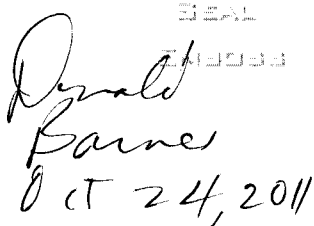 Donald
Barnes
Oct 24, 2011